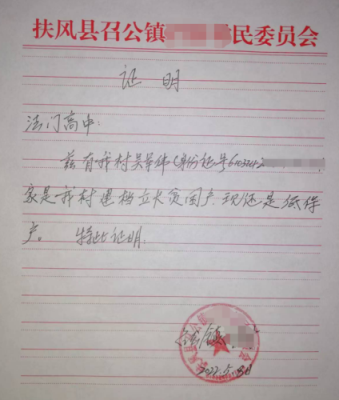 扶风县召公镇 民委员会
证明
法门高中:
兹有我村吴 (身份证号610324
家是我村建档立卡贫困户.现还是低保
户。 特此证明.
镇
2022.5.